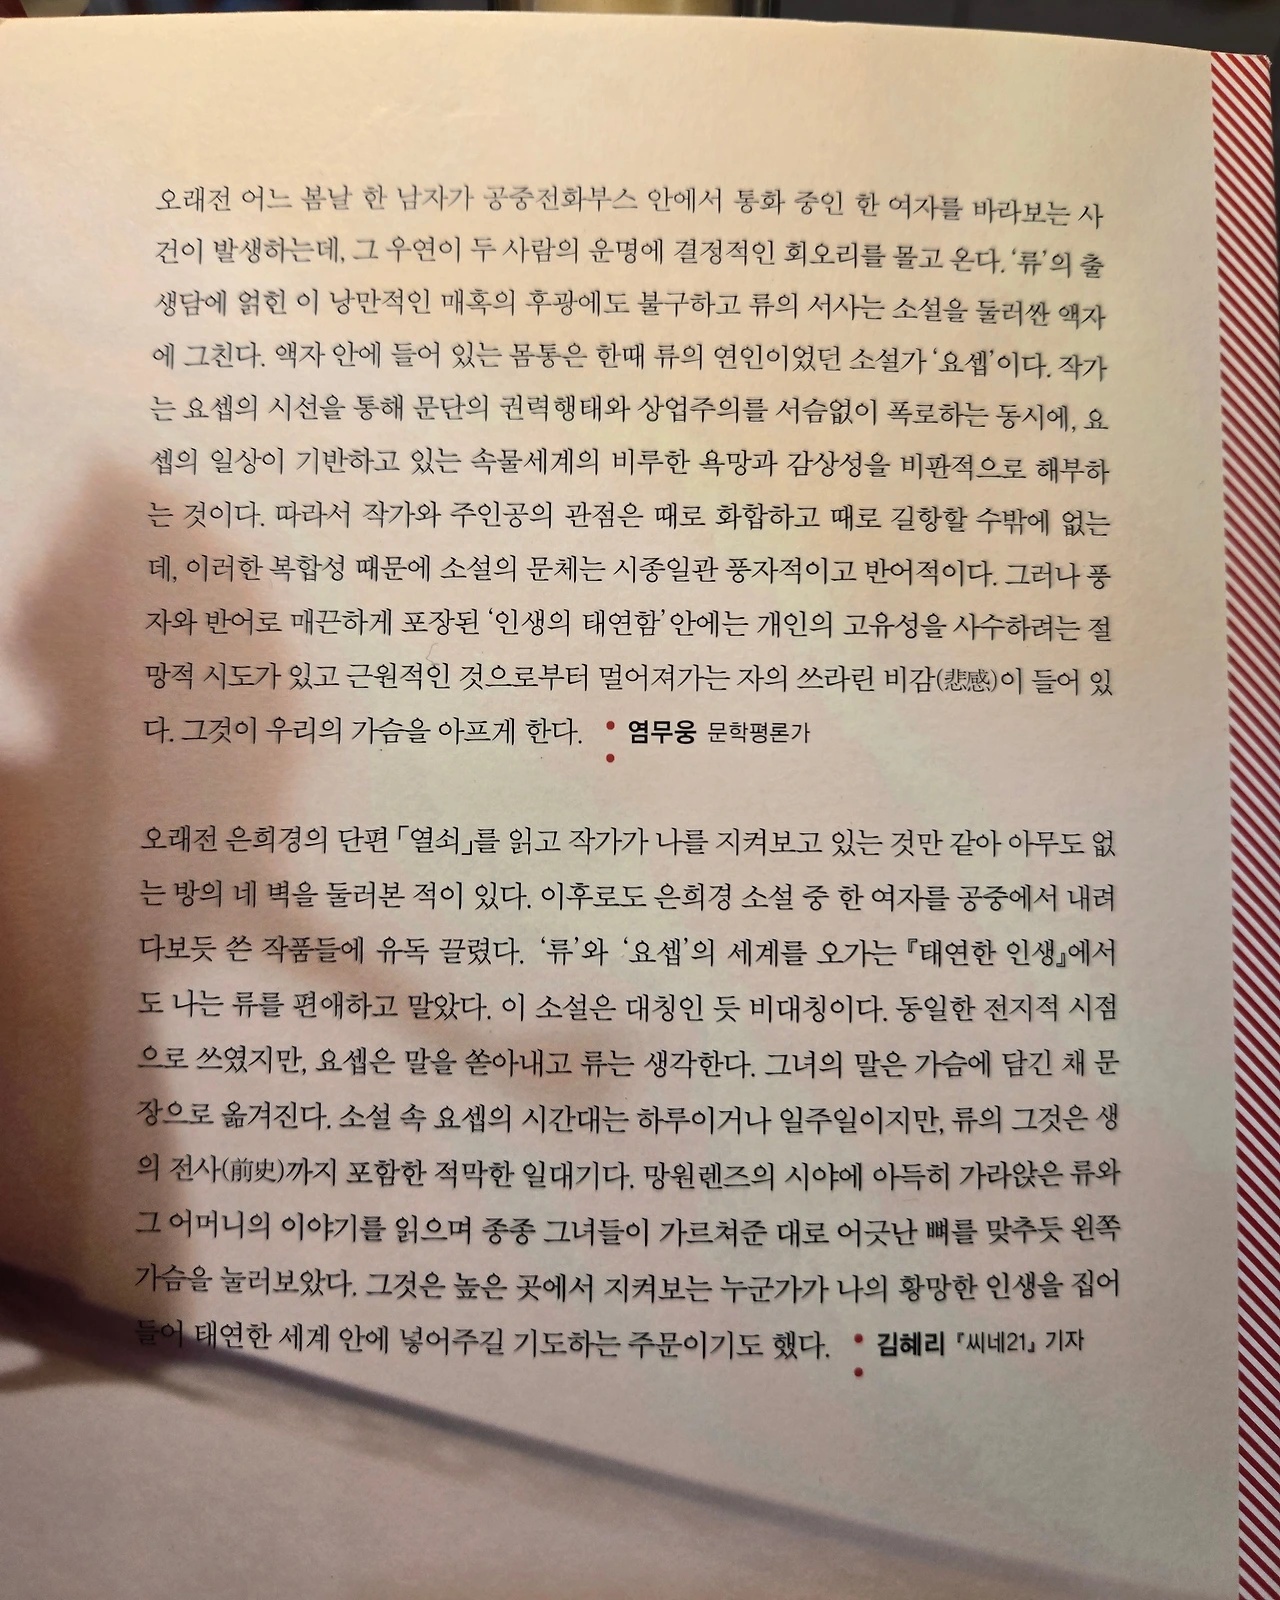 오래전 어느 봄날 한 남자가 공중전화부스 안에서 통화 중인 한 여자를 바라보는 사
건이 발생하는데, 그 우연이 두 사람의 운명에 결정적인 회오리를 몰고 온다. ‘류’의 출
생담에 얽힌 이 낭만적인 매혹의 후광에도 불구하고 류의 서사는 소설을 둘러싼 액자
에 그친다. 액자 안에 들어 있는 몸통은 한때 류의 연인이었던 소설가 ‘요셉’이다. 작가
는 요셉의 시선을 통해 문단의 권력행태와 상업주의를 서슴없이 폭로하는 동시에, 요
셉의 일상이 기반하고 있는 속물세계의 비루한 욕망과 감상성을 비판적으로 해부하
는 것이다. 따라서 작가와 주인공의 관점은 때로 화합하고 때로 길항할 수밖에 없는
데, 이러한 복합성 때문에 소설의 문체는 시종일관 풍자적이고 반어적이다. 그러나 풍
자와 반어로 매끈하게 포장된 ‘인생의 태연함’ 안에는 개인의 고유성을 사수하려는 절
망적 시도가 있고 근원적인 것으로부터 멀어져가는 자의 쓰라린 비감(悲感)이 들어 있
다. 그것이 우리의 가슴을 아프게 한다. 염무웅 문학평론가
오래전 은희경의 단편 「열쇠」를 읽고 작가가 나를 지켜보고 있는 것만 같아 아무도 없
는 방의 네 벽을 둘러본 적이 있다. 이후로도 은희경 소설 중 한 여자를 공중에서 내려
다보듯 쓴 작품들에 유독 끌렸다. ‘류’와 ‘요셉’의 세계를 오가는 『태연한 인생』에서
도 나는 류를 편애하고 말았다. 이 소설은 대칭인 듯 비대칭이다. 동일한 전지적 시점
으로 쓰였지만, 요셉은 말을 쏟아내고 류는 생각한다. 그녀의 말은 가슴에 담긴 채 문
장으로 옮겨진다. 소설 속 요셉의 시간대는 하루이거나 일주일이지만, 류의 그것은 생
의 전사(前史)까지 포함한 적막한 일대기다. 망원렌즈의 시야에 아득히 가라앉은 류와
그 어머니의 이야기를 읽으며 종종 그녀들이 가르쳐준 대로 어긋난 뼈를 맞추듯 왼쪽
가슴을 눌러보았다. 그것은 높은 곳에서 지켜보는 누군가가 나의 황망한 인생을 집어
들어 태연한 세계 안에 넣어주길 기도하는 주문이기도 했다. 김혜리 『씨네21』 기자